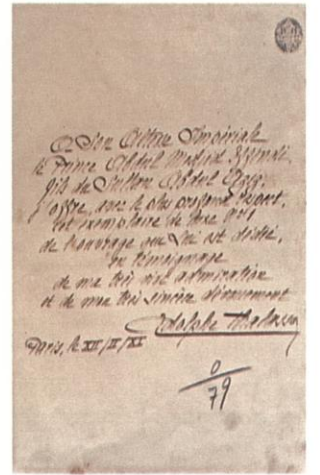 A Son Altesse Impériale
le Prince Abdul Medjid Effendi,
fils du Sultan Abdul Aziz,
j'offre, avec le plus profond respect,
cet exemplaire de luxe
de l'ouvrage qui lui est dédié,
en témoignage
de ma très vive admiration
et de mon très sincère dévouement
Adolphe Thalasso
Paris, le XII/II/XI
0
79